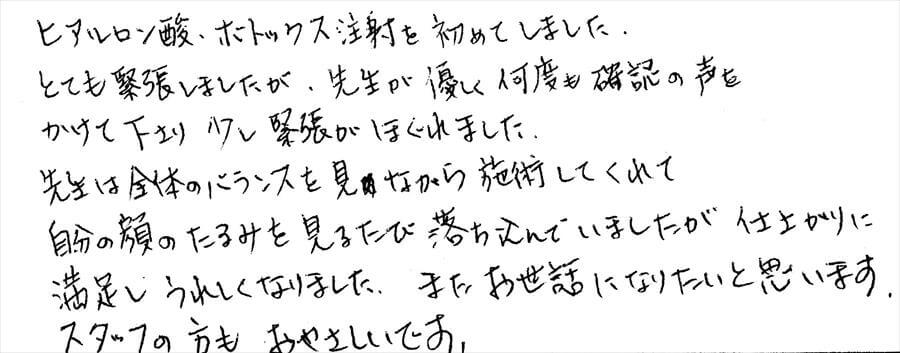 ヒアルロン酸、ボトックス注射を初めてしました.
とても緊張しましたが、先生が優しく何度も確認の声を
かけて下さり少し緊張がほぐれました.
先生は全体のバランスを見ながら施術してくれて
自分の顔のたるみを見るたび落ち込んでいましたが仕上がりに
満足しうれしくなりました. またお世話になりたいと思います.
スタッフの方もおやさしいです,